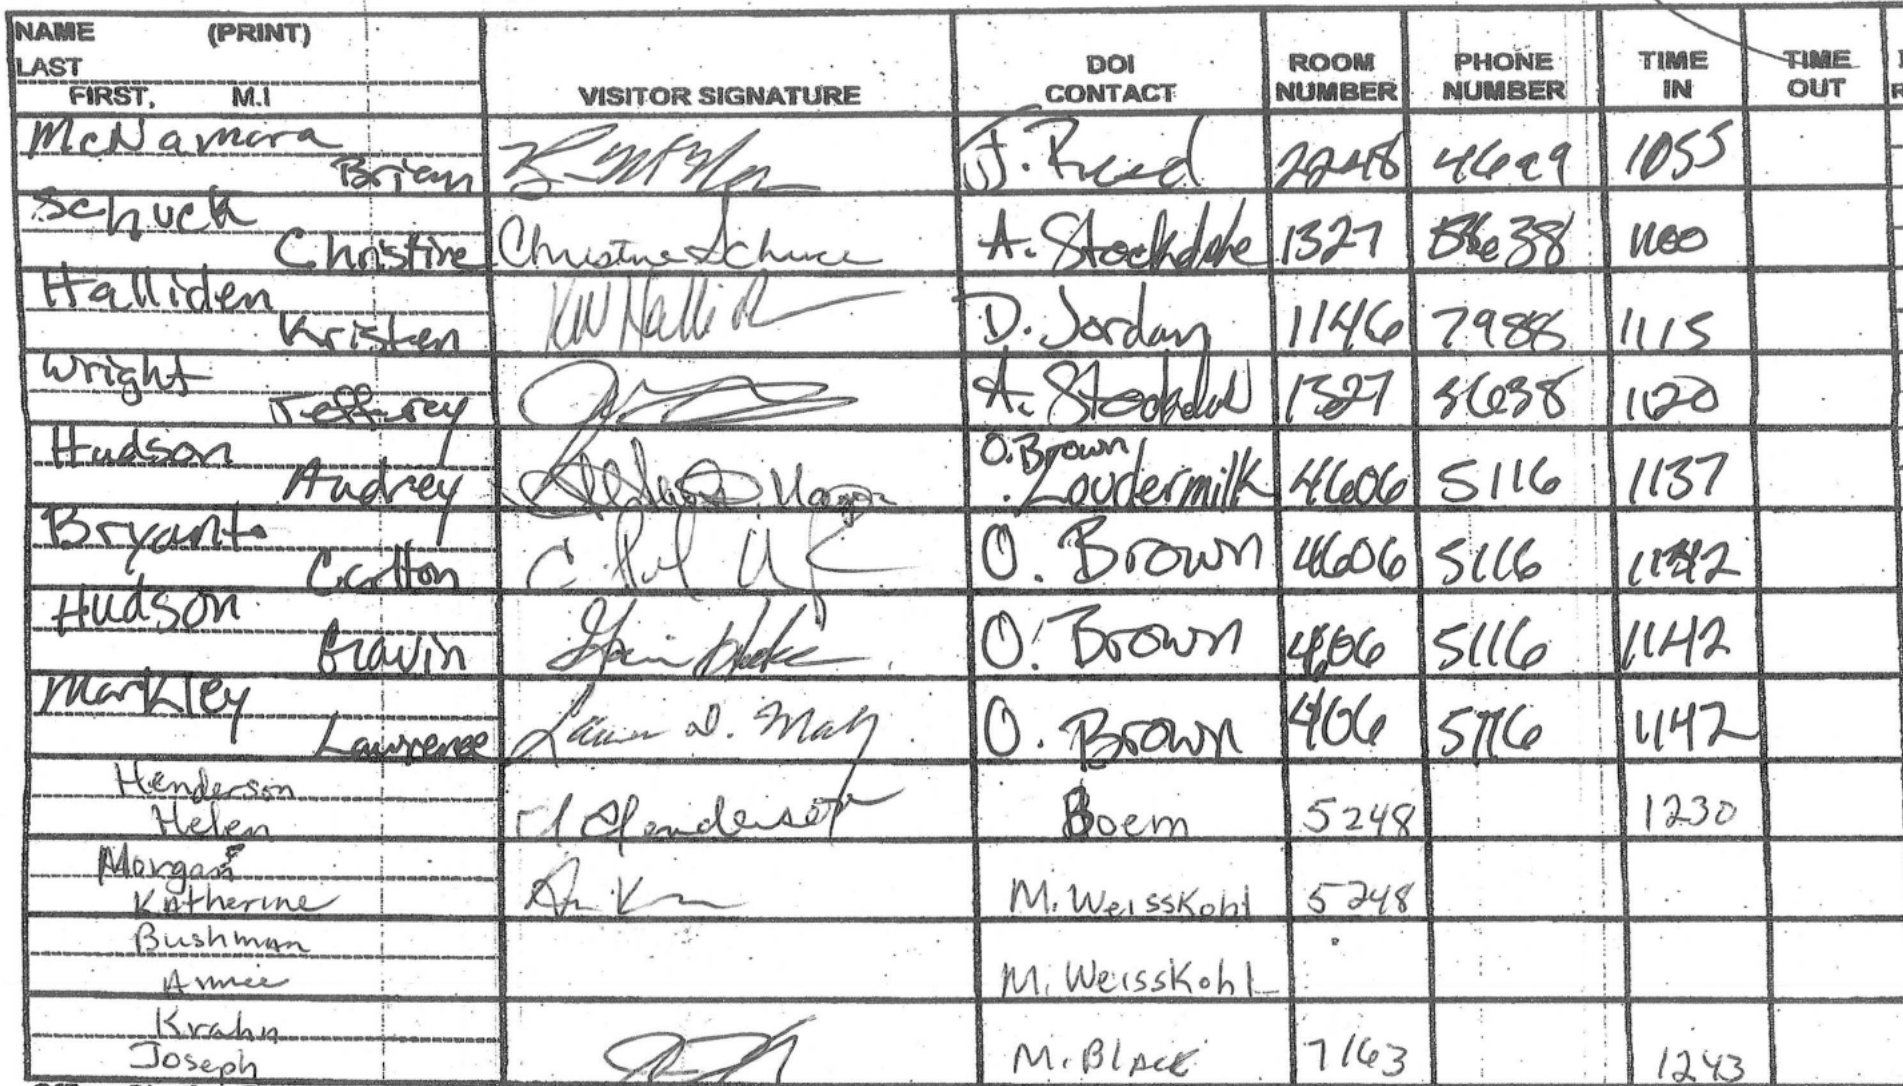 NAME (PRINT)
LAST
FIRST, M.I
VISITOR SIGNATURE
DOI CONTACT
ROOM NUMBER
PHONE NUMBER
TIME IN
TIME OUT
McNamara
Brian J. Reed 2248 4699 1055
Schuck
Christine Christine Schuck A. Stockdale 1327 1100
Halliden
Kristen KW Hallid D. Jordan 1146 7988 1115
Wright
Jeffrey A. Stockdal 1327 3638 1120
Hudson O. Brown
Audrey Loudermilk 4606 5116 1137
Bryant
Carlton O. Brown 4606 5116
Hudson
Gavin O. Brown 4606 5116 1142
Markley
Lawrence O. Brown 406 5116 1142
Henderson
Helen H Henderson Boem 5248 1230
Morgan
Katherine M. Weisskohl 5248
Bushman
M. Weisskohl
Krahn
Joseph M. Black 7163 1243